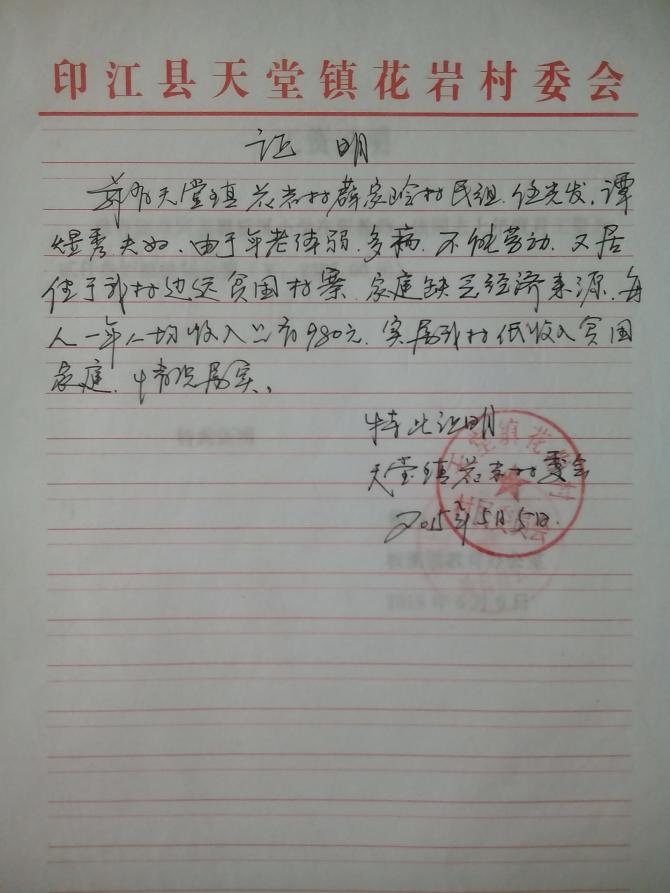 印江县天堂镇花岩村委会
证 明
兹有天堂镇花岩村薛家岭村民组,任光发、谭
煜秀夫妇,由于年老体弱,多病,不能劳动,又居
住于我村边远贫困村寨,家庭缺乏经济来源,每
人一年人均收入只有980元,实属我村低收入贫困
家庭,情况属实。
特此证明
天堂镇花岩村委会
2015年5月5日.
天堂镇花岩村
村民委员会